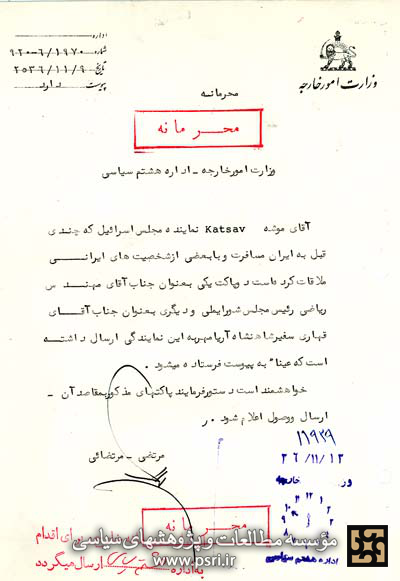 اداره
شماره ۹۲۰-۶/۱۹۷۰
تاریخ ۲۵۳۶/۱۱/۹
پیوست دارد
وزارت امورخارجه
محرمانه
محرمانه
وزارت امورخارجه - اداره هشتم سیاسی
آقای موشه Katsav نماینده مجلس اسرائیل که چندی
قبل به ایران مسافرت و با بعضی از شخصیت های ایرانی
ملاقات کرده است دو پاکت یکی بعنوان جناب آقای مهندس
ریاضی رئیس مجلس شورایملی و دیگری بعنوان جناب آقای
سفیر شاهنشاه آریامهر به این نمایندگی ارسال داشته
است که عیناً به پیوست فرستاده میشود.
خواهشمند است دستور فرمایند پاکتهای مذکور بمقاصد آن -
ارسال و وصول اعلام شود.
مرتضی - مرتضائی
۱۱۹۳۹
۳۶/۱۱/۱۲
اداره هشتم سیاسی
محرمانه
برای اقدام
به اداره هشتم سیاسی ارسال میگردد
موسسه مطالعات و پژوهشهای سیاسی
www.psri.ir